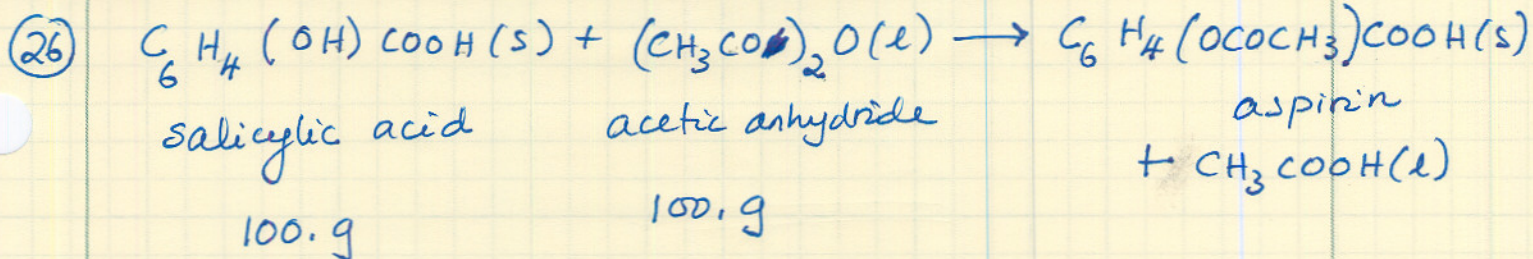 (26) C₆H₄(OH)COOH(s) + (CH₃CO)₂O(l) → C₆H₄(OCOCH₃)COOH(s)
salicylic acid acetic anhydride aspirin
+ CH₃COOH(l)
100. g 100. g